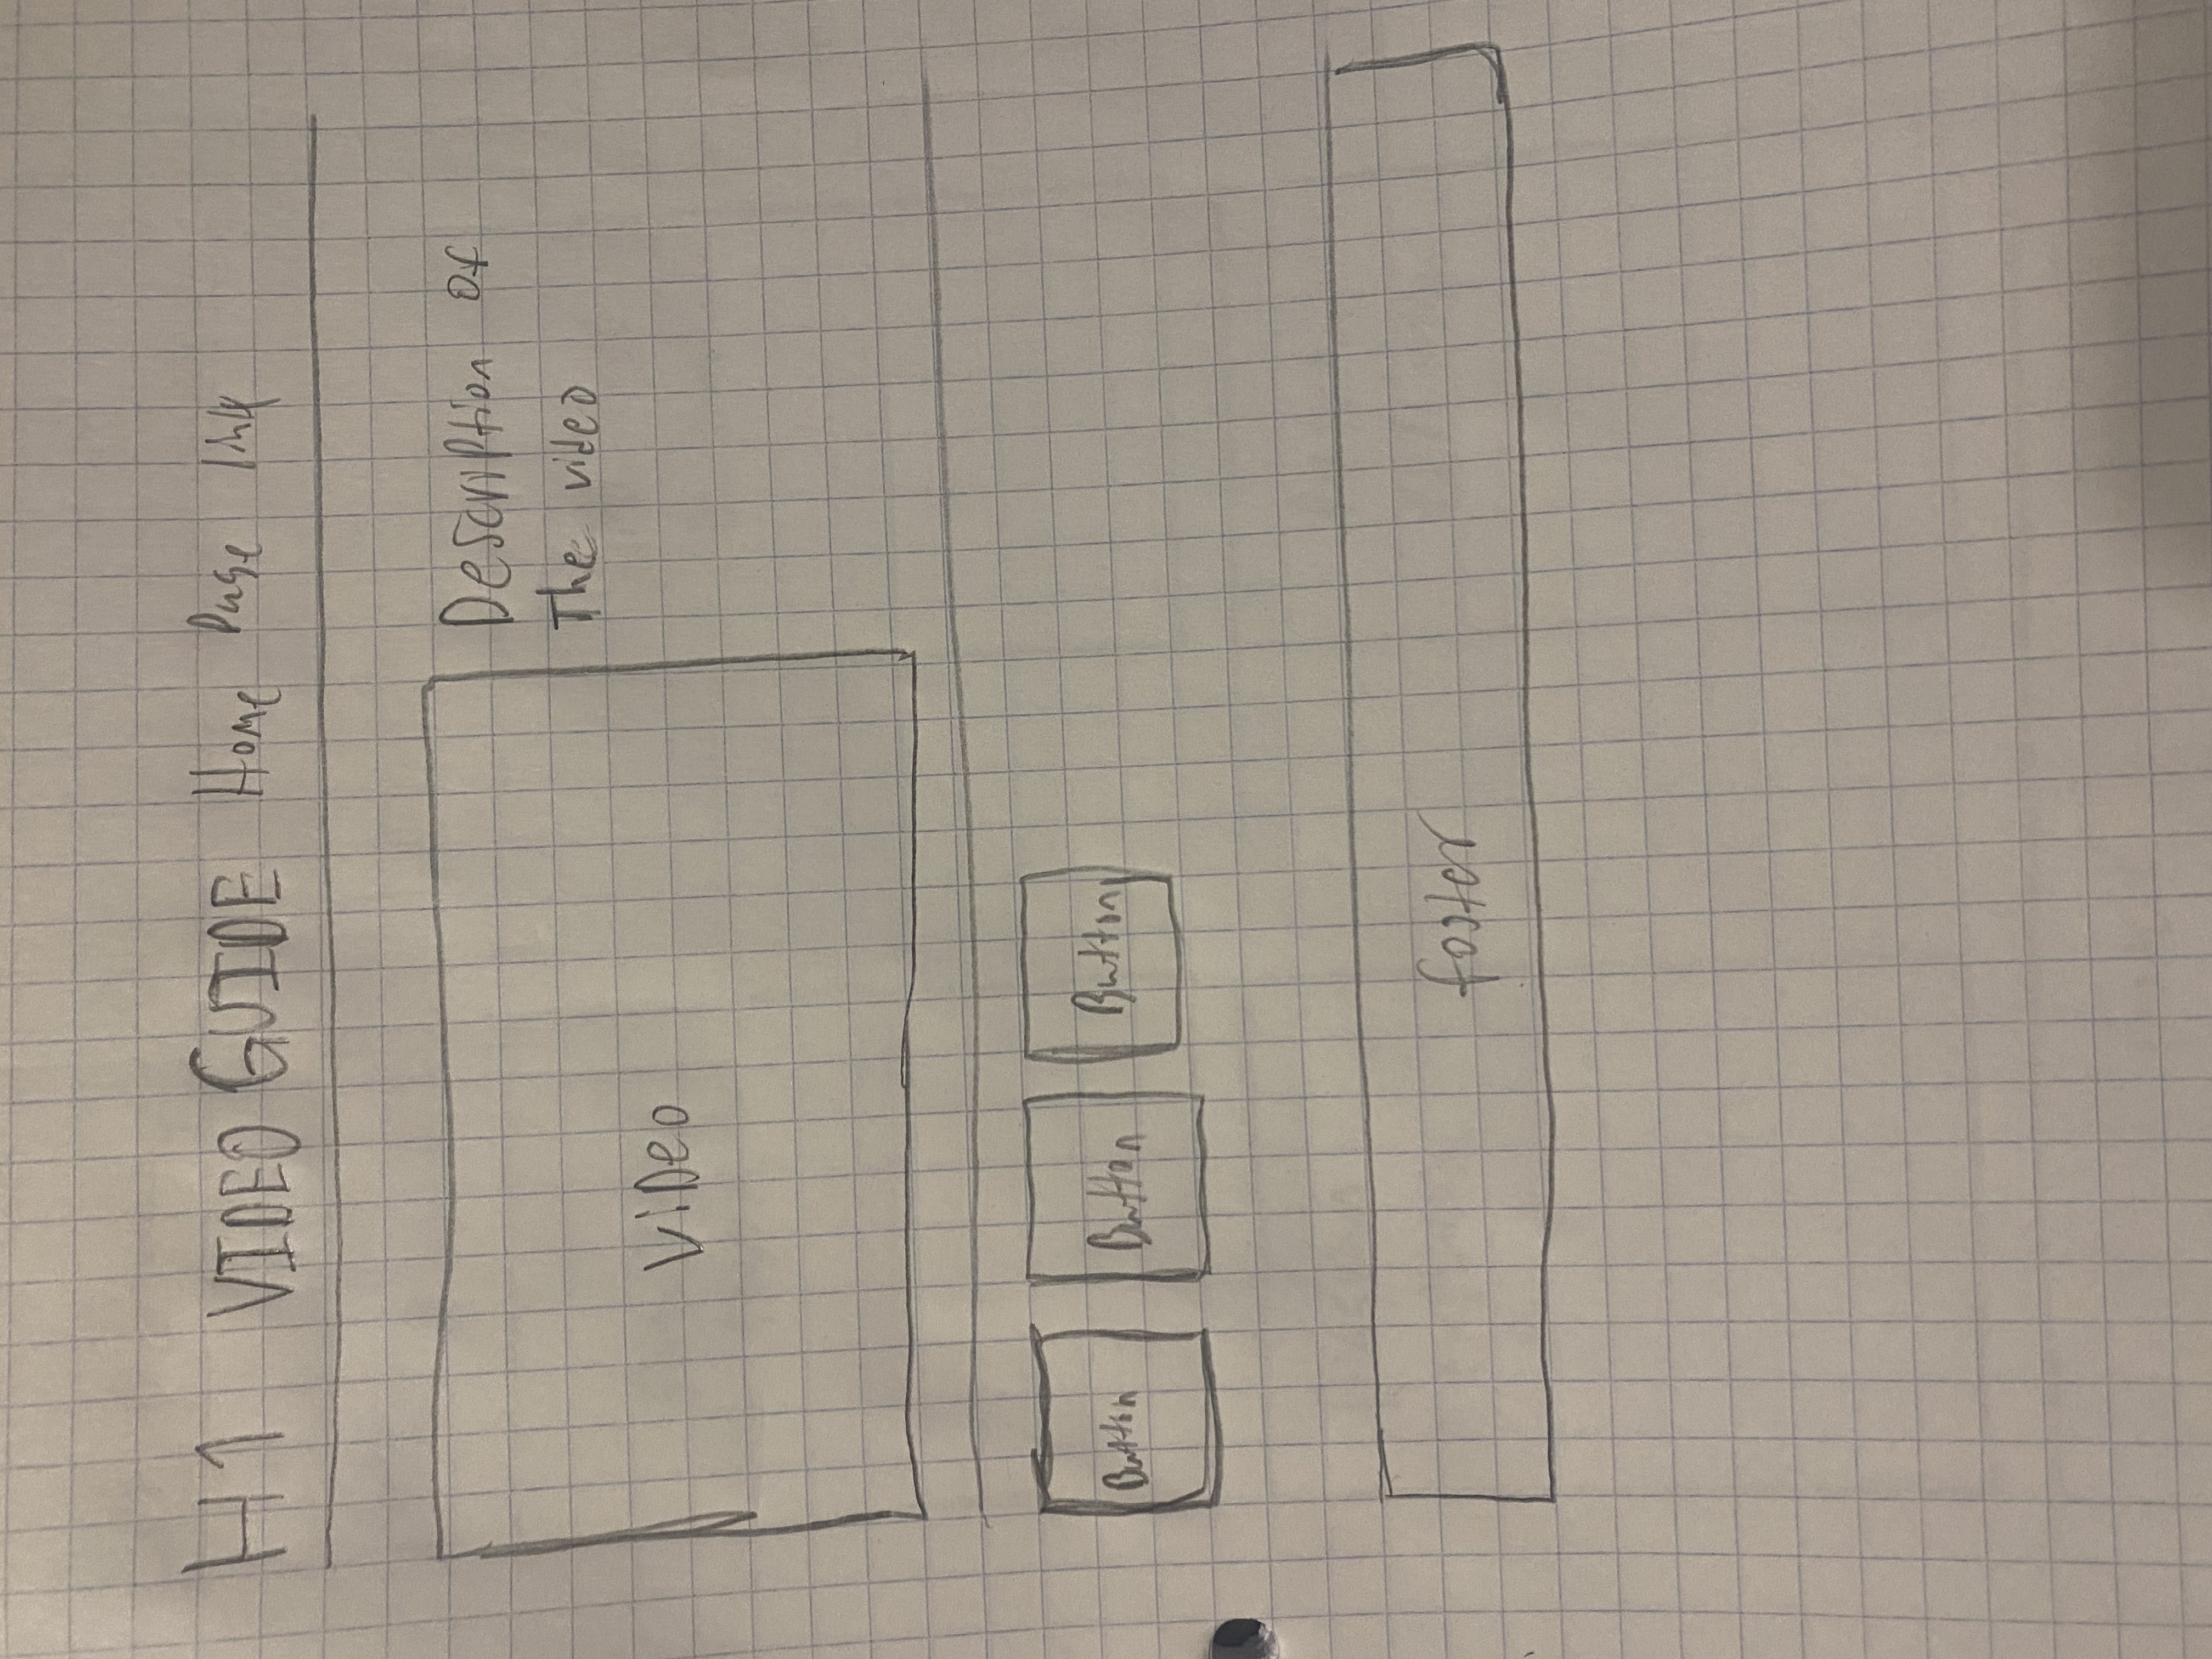 H1 VIDEO GUIDE Home Page link
Description of
The video
ViDeo
Button Button Button
footer